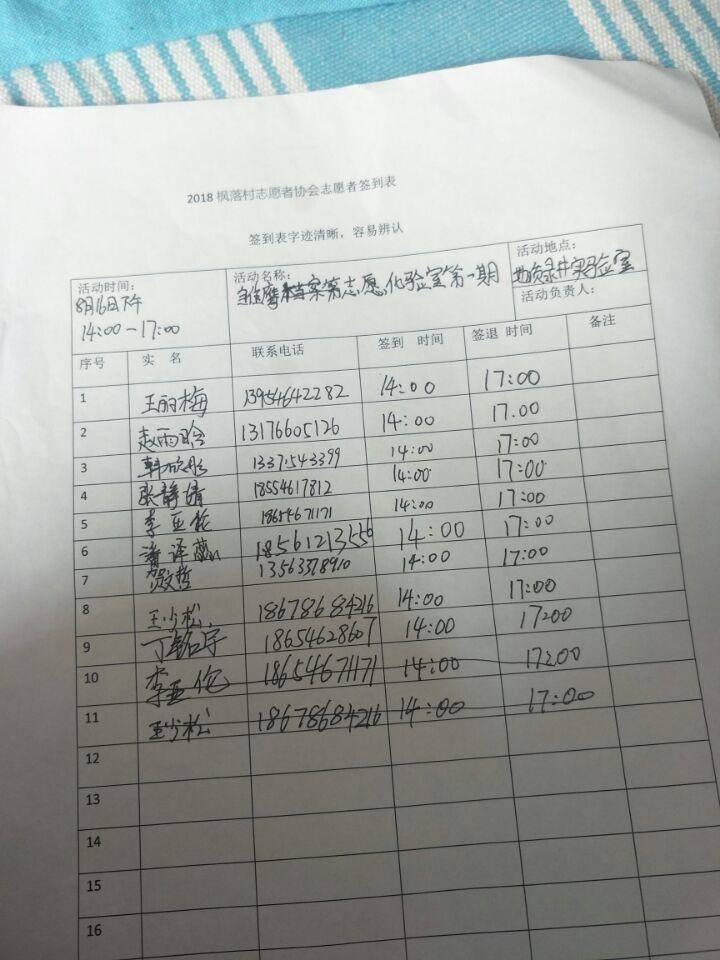 2018 枫落村志愿者协会志愿者签到表
签到表字迹清晰，容易辨认
活动时间：
8月16日下午
14:00-17:00
活动名称：
档案第志愿化验室第一期
活动地点：
地质录井实验室
活动负责人：
序号 实 名 联系电话 签到 时间 签退 时间 备注
1 王丽梅 13954642282 14:00 17:00
2 赵雨晗 13176605126 14:00 17.00
3 韩欣彤 1337543399 14:00 17:00
4 张静婧 18554617812 14:00 17:00
5 李亚伦 18654671171 14:00 17:00
6 潘译 18561213556 14:00 17:00
7 贺哲 13563378910 14:00 17:00
8 王少松 18678684216 14:00 17:00
9 丁铭宇 18654628607 14:00 17:00
10 李亚伦 18654671171 14:00 17:00
11 王少松 18678684216 14:00 17:00
12
13
14
15
16